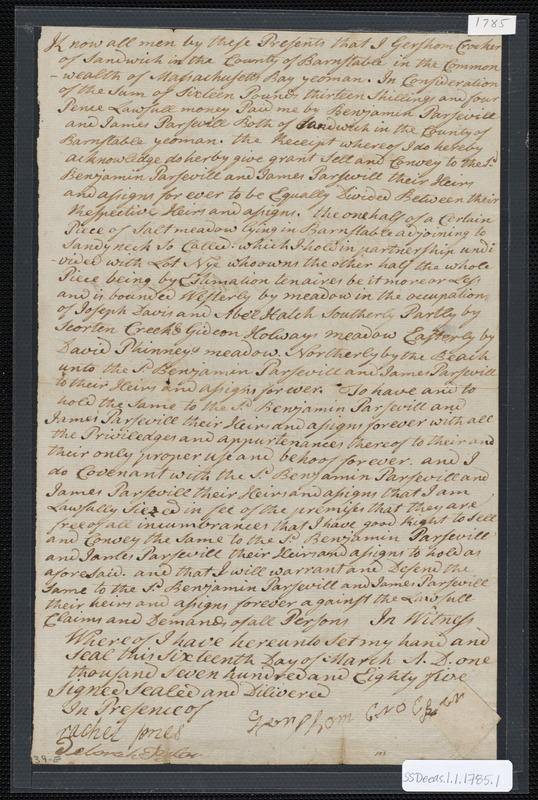 1785
Know all men by these Presents that I Gershom Crocker
of Sandwich in the County of Barnstable in the Common
-wealth of Massachusetts Bay yeoman. In Consideration
of the Sum of Sixteen Pounds thirteen Shillings and four
Pence Lawfull money Paid me by Benjamin Parsevill
and James Parsevill Both of Sandwich in the County of
Barnstable yeoman. the Receipt whereof I do hereby
acknowledge do hereby give grant Sell and Convey to the Sd.
Benjamin Parsevill and James Parsevill their Heirs
and assigns for ever to be Equally Divided Between their
Respective Heirs and assigns. the one half of a Certain
Piece of Salt meadow lying in Barnstable adjoining to
Sandy neck So Called: which I hold in partnership undi
-vided with Lot Nye who owns the other half the whole
Piece being by Estimation ten aires be it more or Less
and is bounded Westerly by meadow in the occupation
of Joseph Davis and Abel Hatch Southerly Partly by
Scorten Creek & Gideon Holways meadow Easterly by
David Phinneys meadow. Northerly by the Beach
unto the Sd. Benjamin Parsevill and James Parsevill
to their Heirs and assigns for ever. To have and to
hold the Same to the Sd. Benjamin Parsevill and
James Parsevill their Heirs and assigns forever with all
the Priviledges and appurtenances thereof to their and
their only proper use and behoof forever. and I
do Covenant with the Sd. Benjamin Parsevill and
James Parsevill their Heirs and assigns that I am
Lawfully Siezed in fee of the premises that they are
free of all incumbrances that I have good Right to Sell
and Convey the Same to the Sd. Benjamin Parsevill
and James Parsevill their Heirs and assigns to hold as
aforesaid. and that I will warrant and Defend the
Same to the Sd. Benjamin Parsevill and James Parsevill
their heirs and assigns forever against the Lawfull
Claims and Demands of all Persons In Witness
Where of I have hereunto Set my hand and
Seal this Sixteenth Day of March A. D. one
thousand Seven hundred and Eighty five
Signed Sealed and Delivered
In Presence of
Gershom Crocker
Rachel Jones
Deborah
38-E
SSDeeds.1.1.1785.1